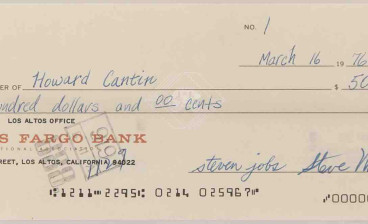 NO. 1
March 16 1976
ER OF Howard Cantin $ 50
ndred dollars and 00 cents
LOS ALTOS OFFICE
S FARGO BANK
TREET, LOS ALTOS, CALIFORNIA 94022
steven jobs Steve W
⑆1211⑉2295⑆ 0214 025967⑈ ⑈00000